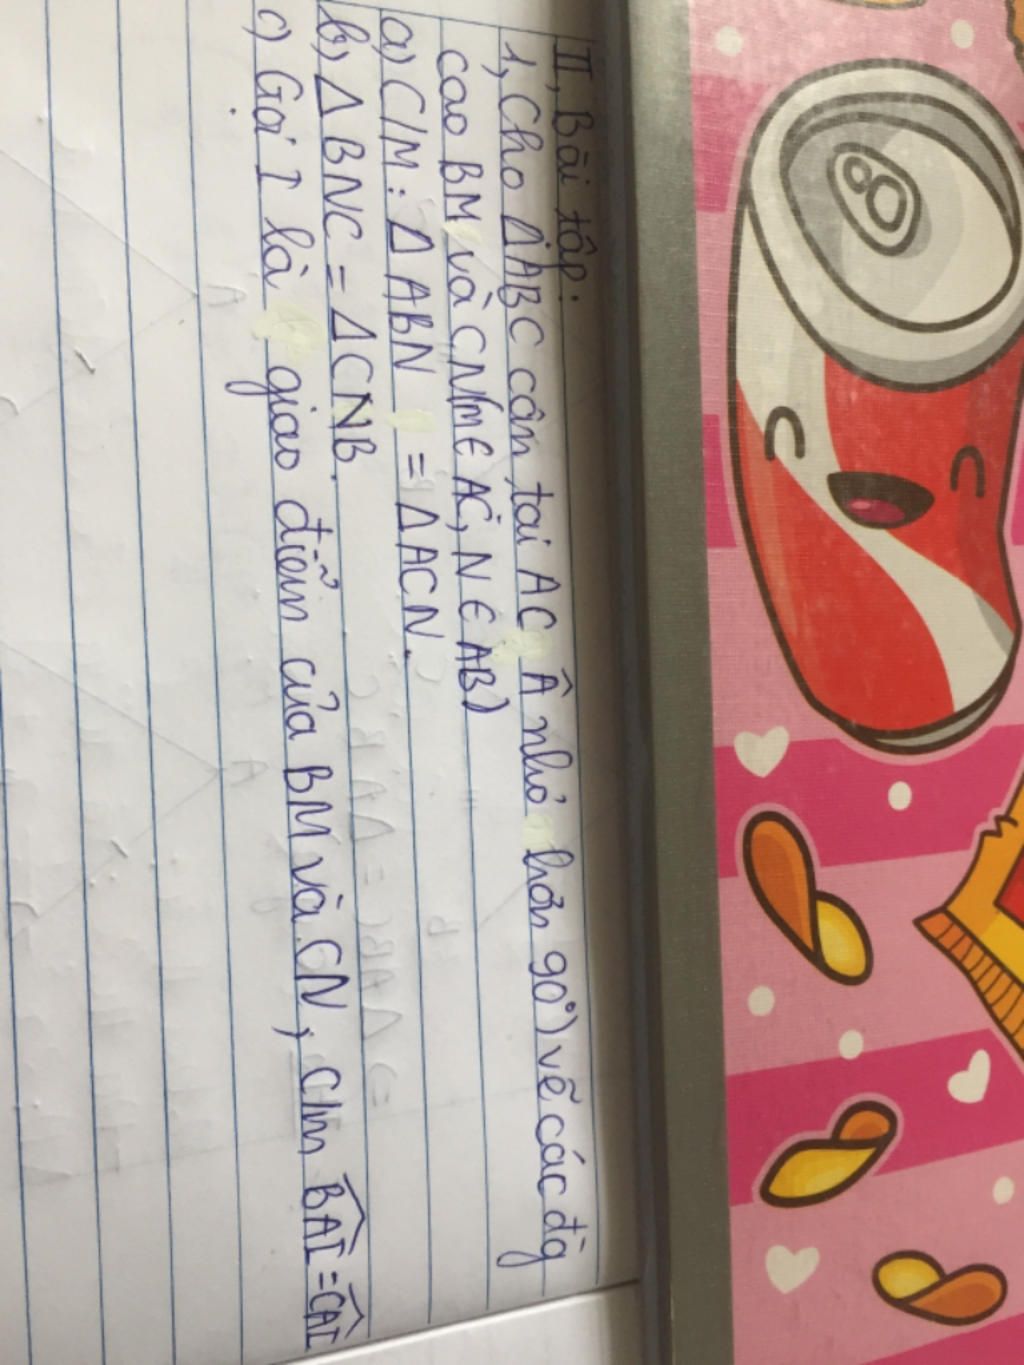 II, Bài tập:
1, Cho ΔABC cân tại A( Â nhỏ hơn 90°) vẽ các đg
cao BM và CN(M ∈ AC, N ∈ AB)
a) C/M: Δ ABN = ΔACN.
b) Δ BNC = ΔCNB.
c) Gọi I là giao điểm của BM và CN, C/m BAI = CAI